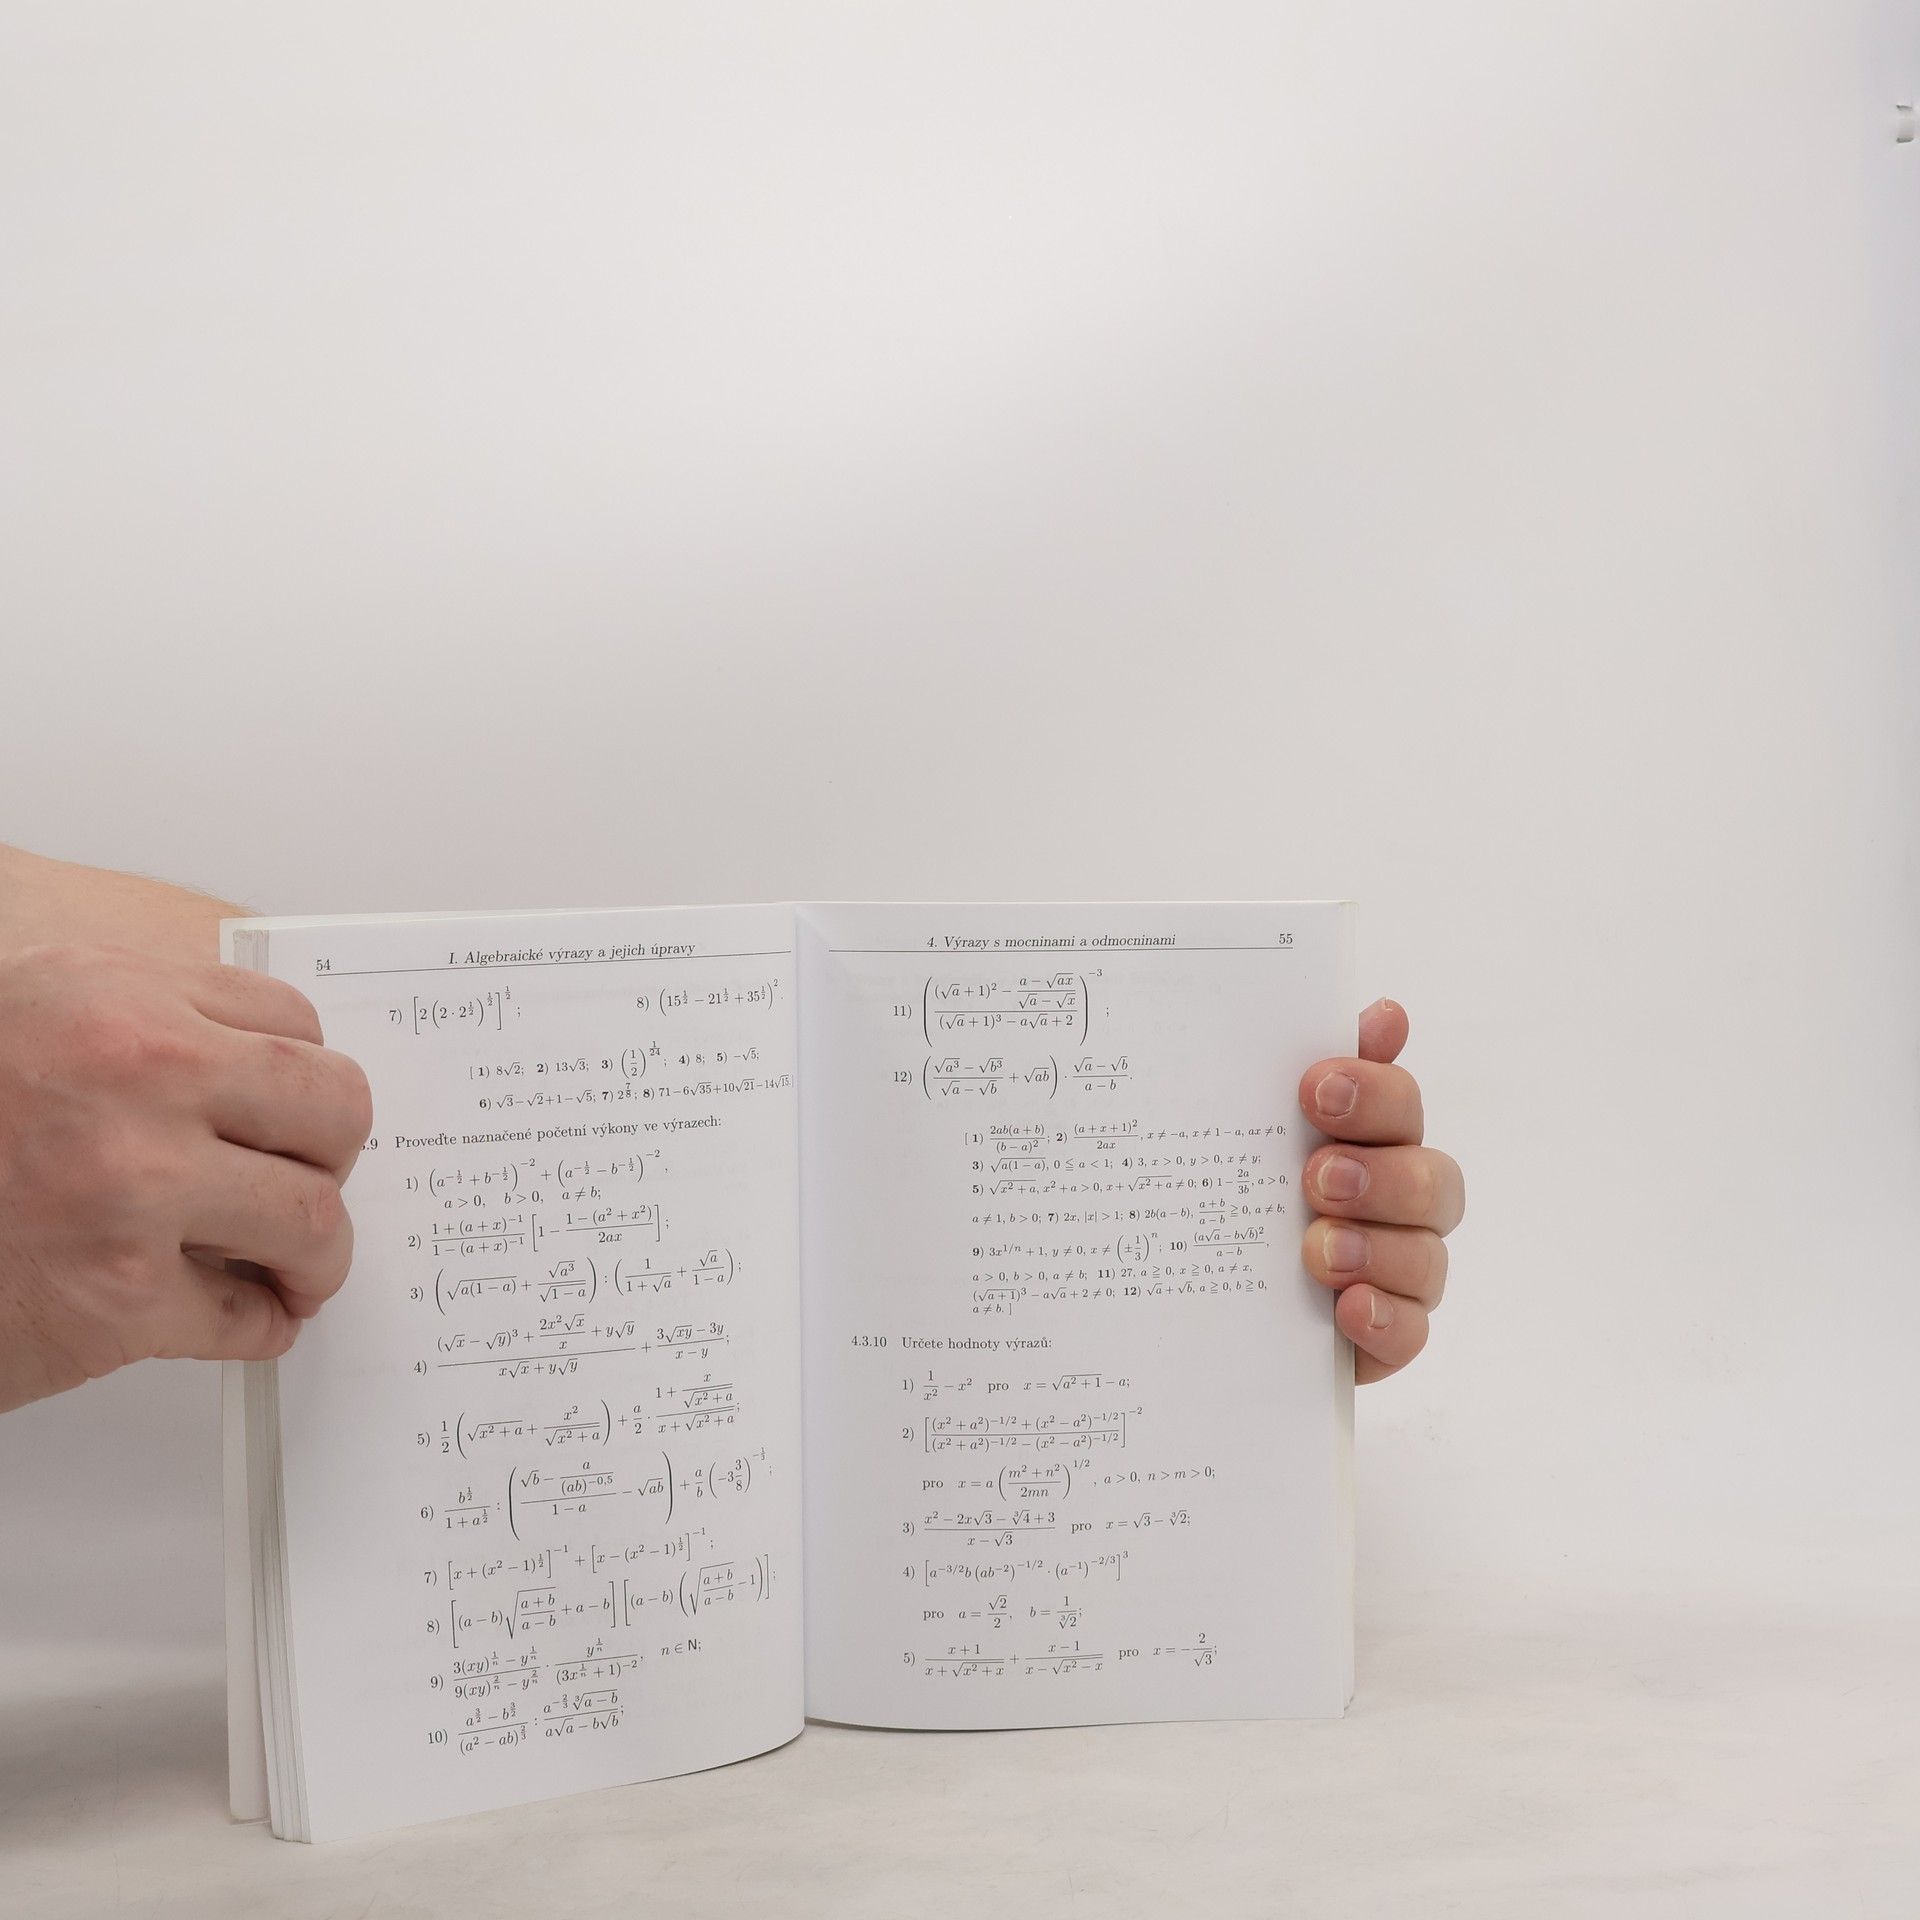 54 I. Algebraické výrazy a jejich úpravy
7) [2(2·2^{1/2})^{1/2}]^{1/2}; 8) (15^{1/2} − 21^{1/2} + 35^{1/2})^2.
[ 1) 8√2; 2) 13√3; 3) (1/2)^{1/24}; 4) 8; 5) −√5;
6) √3−√2+1−√5; 7) 2^{7/8}; 8) 71−6√35+10√21−14√15.]
.9 Proveďte naznačené početní výkony ve výrazech:
1) (a^{−1/2} + b^{−1/2})^{−2} + (a^{−1/2} − b^{−1/2})^{−2},
a > 0, b > 0, a ≠ b;
2) (1 + (a + x)^{−1})/(1 − (a + x)^{−1}) [1 − (1 − (a² + x²))/(2ax)];
3) (√(a(1 − a)) + √(a³)/√(1 − a)) : (1/(1 + √a) + √a/(1 − a));
4) ((√x − √y)³ + (2x²√x)/x + y√y)/(x√x + y√y) + (3√(xy) − 3y)/(x − y);
5) 1/2 (√(x² + a) + x²/√(x² + a)) + a/2 · (1 + x/√(x² + a))/(x + √(x² + a));
6) b^{1/2}/(1 + a^{1/2}) : ((√b − a/(ab)^{−0,5})/(1 − a) − √(ab)) + a/b (−3 3/8)^{−1/3};
7) [x + (x² − 1)^{1/2}]^{−1} + [x − (x² − 1)^{1/2}]^{−1};
8) [(a − b)√((a + b)/(a − b)) + a − b] [(a − b)(√((a + b)/(a − b)) − 1)];
9) (3(xy)^{1/n} − y^{1/n})/(9(xy)^{2/n} − y^{2/n}) · y^{1/n}/(3x^{1/n} + 1)^{−2}, n ∈ N;
10) (a^{3/2} − b^{3/2})/(a² − ab)^{2/3} : (a^{−2/3} ∛(a − b))/(a√a − b√b);
4. Výrazy s mocninami a odmocninami 55
11) (((√a + 1)² − (a − √(ax))/(√a − √x))/((√a + 1)³ − a√a + 2))^{−3};
12) ((√(a³) − √(b³))/(√a − √b) + √(ab)) · (√a − √b)/(a − b).
[ 1) 2ab(a + b)/(b − a)²; 2) (a + x + 1)²/(2ax), x ≠ −a, x ≠ 1 − a, ax ≠ 0;
3) √(a(1 − a)), 0 ≦ a < 1; 4) 3, x > 0, y > 0, x ≠ y;
5) √(x² + a), x² + a > 0, x + √(x² + a) ≠ 0; 6) 1 − 2a/3b, a > 0,
a ≠ 1, b > 0; 7) 2x, |x| > 1; 8) 2b(a − b), (a + b)/(a − b) ≧ 0, a ≠ b;
9) 3x^{1/n} + 1, y ≠ 0, x ≠ (±1/3)^n; 10) (a√a − b√b)²/(a − b),
a > 0, b > 0, a ≠ b; 11) 27, a ≧ 0, x ≧ 0, a ≠ x,
(√(a + 1))³ − a√a + 2 ≠ 0; 12) √a + √b, a ≧ 0, b ≧ 0,
a ≠ b. ]
4.3.10 Určete hodnoty výrazů:
1) 1/x² − x² pro x = √(a² + 1) − a;
2) [((x² + a²)^{−1/2} + (x² − a²)^{−1/2})/((x² + a²)^{−1/2} − (x² − a²)^{−1/2})]^{−2}
pro x = a((m² + n²)/(2mn))^{1/2}, a > 0, n > m > 0;
3) (x² − 2x√3 − ∛4 + 3)/(x − √3) pro x = √3 − ∛2;
4) [a^{−3/2}b(ab^{−2})^{−1/2} · (a^{−1})^{−2/3}]³
pro a = √2/2, b = 1/∛2;
5) (x + 1)/(x + √(x² + x)) + (x − 1)/(x − √(x² − x)) pro x = −2/√3;